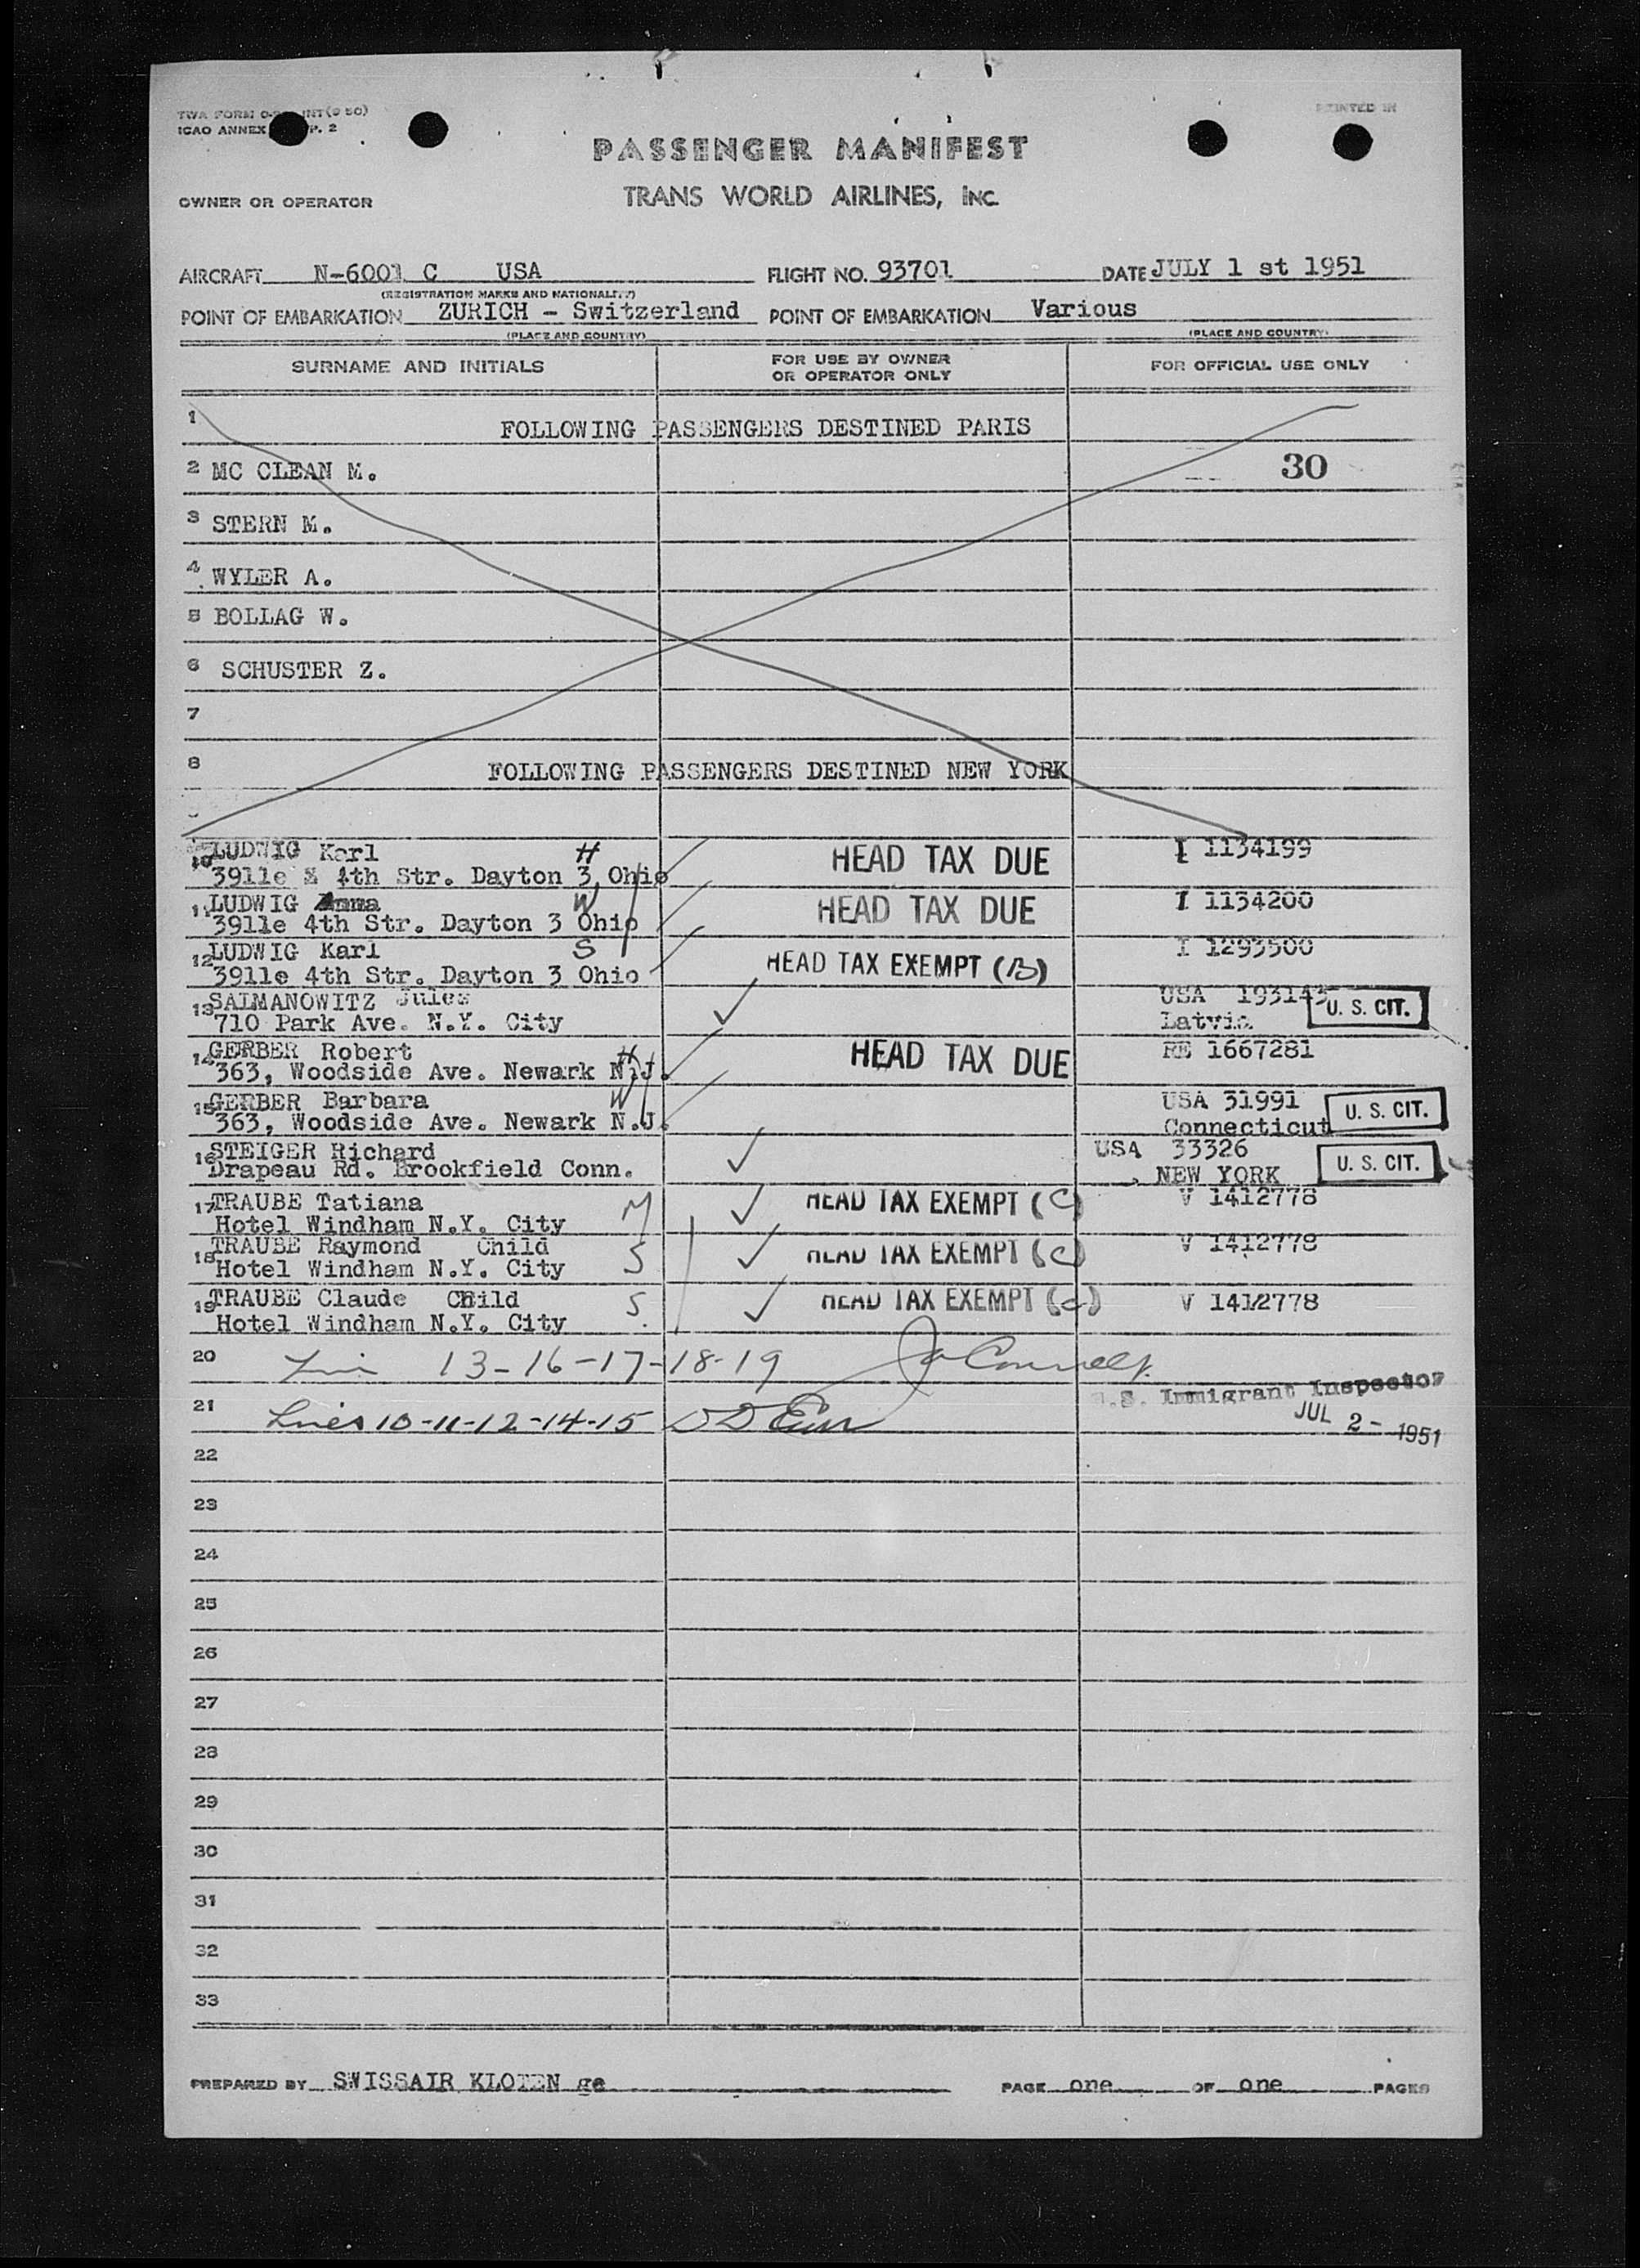 ICAO ANNEX P. 2
PRINTED IN
PASSENGER MANIFEST
OWNER OR OPERATOR
TRANS WORLD AIRLINES, INC.
AIRCRAFT N-6001 C USA FLIGHT NO. 93701 DATE JULY 1 st 1951
(REGISTRATION MARKS AND NATIONALITY)
POINT OF EMBARKATION ZURICH - Switzerland POINT OF EMBARKATION Various
(PLACE AND COUNTRY) (PLACE AND COUNTRY)
SURNAME AND INITIALS FOR USE BY OWNER OR OPERATOR ONLY FOR OFFICIAL USE ONLY
1 FOLLOWING PASSENGERS DESTINED PARIS
2 MC CLEAN M. 30
3 STERN M.
4 WYLER A.
5 BOLLAG W.
6 SCHUSTER Z.
7
8 FOLLOWING PASSENGERS DESTINED NEW YORK
10 LUDWIG Karl H HEAD TAX DUE I 1134199
3911e 4th Str. Dayton 3, Ohio
11 LUDWIG Anna W HEAD TAX DUE I 1134200
3911e 4th Str. Dayton 3 Ohio
12 LUDWIG Karl S HEAD TAX EXEMPT (B) I 1293500
3911e 4th Str. Dayton 3 Ohio
13 SALMANOWITZ Jules USA 193143 U. S. CIT.
710 Park Ave. N.Y. City Latvia
14 GERBER Robert H HEAD TAX DUE RE 1667281
363, Woodside Ave. Newark N.J.
15 GERBER Barbara W USA 31991 U. S. CIT.
363, Woodside Ave. Newark N.J. Connecticut
16 STEIGER Richard USA 33326 U. S. CIT.
Drapeau Rd. Brookfield Conn. NEW YORK
17 TRAUBE Tatiana M HEAD TAX EXEMPT (C) V 1412778
Hotel Windham N.Y. City
18 TRAUBE Raymond Child S HEAD TAX EXEMPT (C) V 1412778
Hotel Windham N.Y. City
19 TRAUBE Claude Child S HEAD TAX EXEMPT (C) V 1412778
Hotel Windham N.Y. City
20 13-16-17-18-19
U.S. Immigrant Inspector
21 Lines 10-11-12-14-15 JUL 2- 1951
22
23
24
25
26
27
28
29
30
31
32
33
PREPARED BY SWISSAIR KLOTEN ge PAGE one OF one PAGES